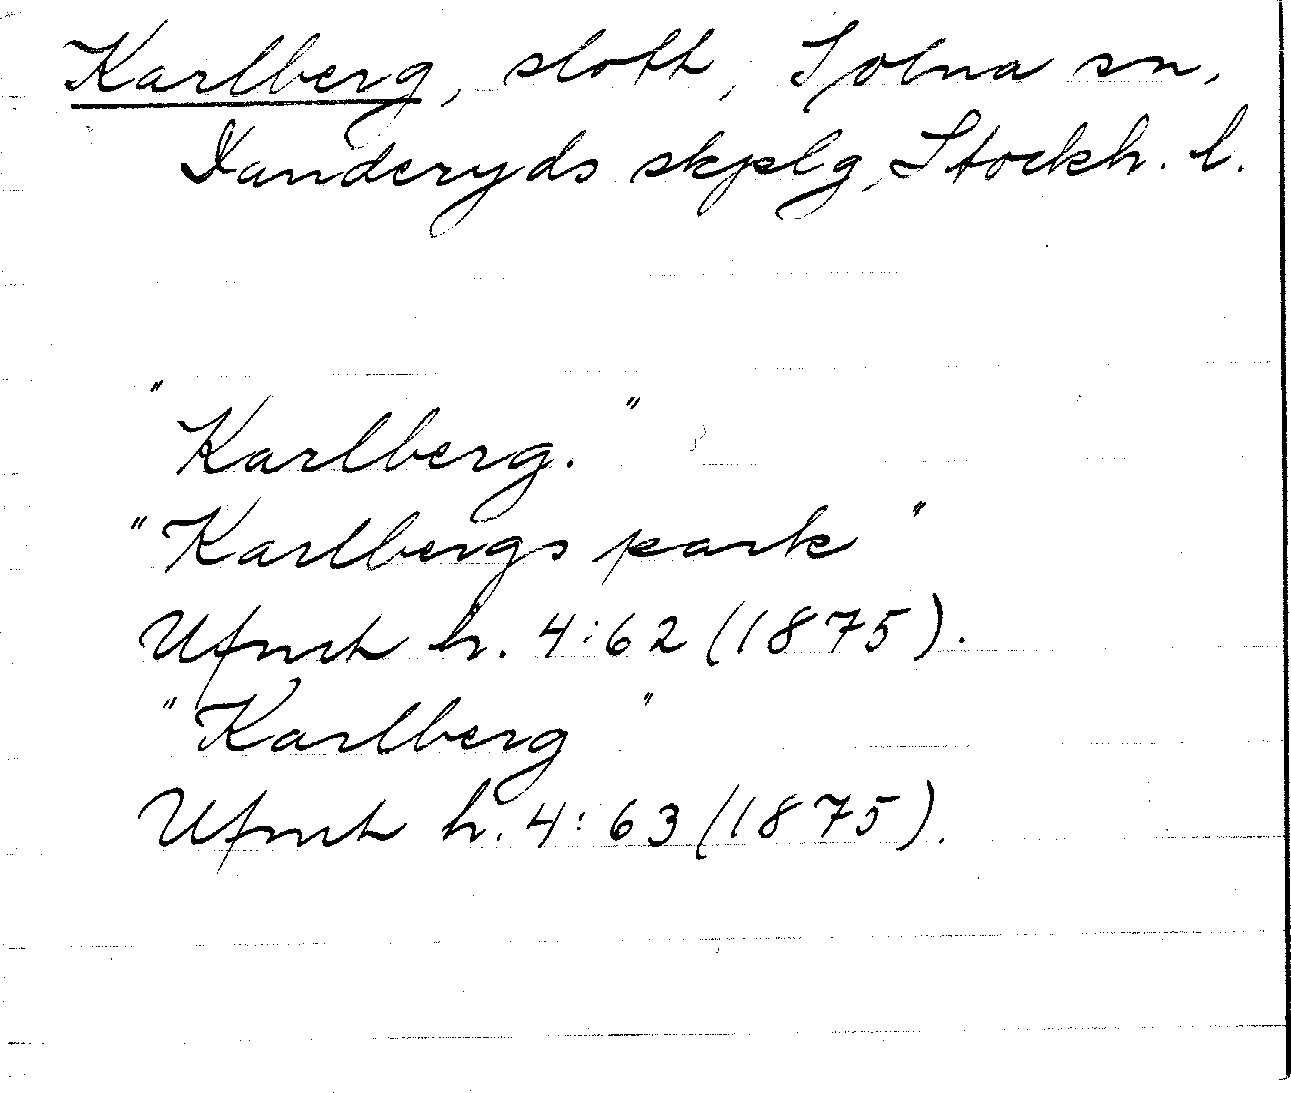 Karlberg, slott, Solna sn,
Danderyds skjplg, Stockh. l.
"Karlberg."
"Karlbergs park"
Ufmth h. 4:62 (1875).
"Karlberg"
Ufmth h. 4:63 (1875).